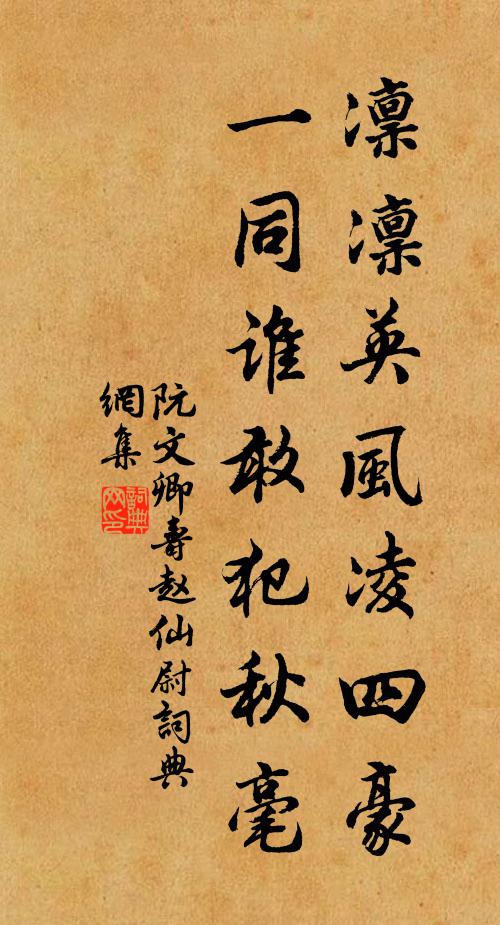 凛凛英風凌四豪
一同誰敢犯秋毫
阮文卿壽赵仙尉詞典
網集
詞典
网印